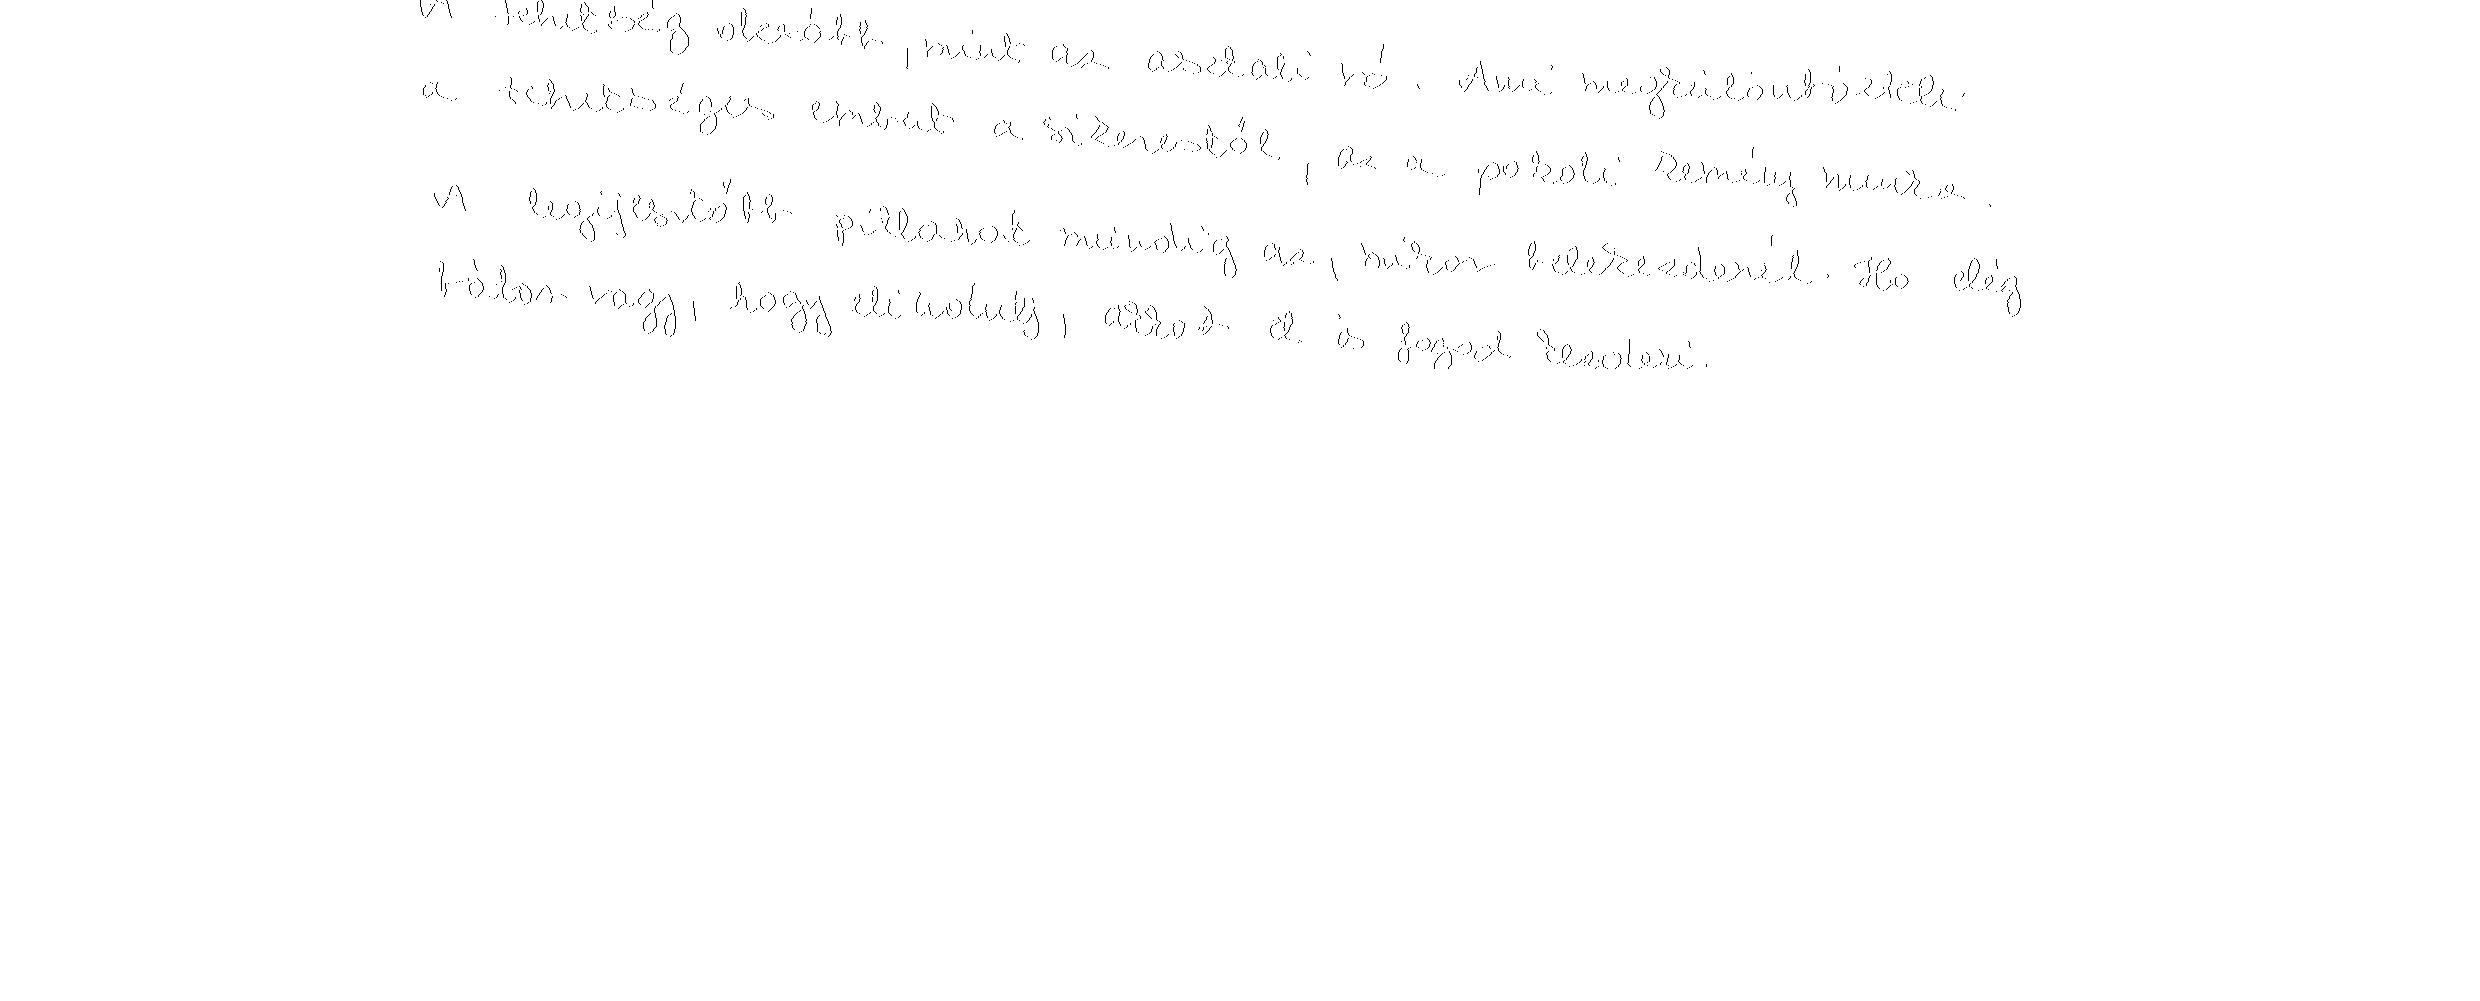 A tehetség olcsóbb, mint az asztali só. Ami megkülönbözteti
a tehetséges embert a sikerestől, az a pokoli kemény munka.
A legijesztőbb pillanat mindig az, mikor belekezdenél. Ha elég
bátor vagy, hogy elindulj, akkor el is fogod kezdeni.